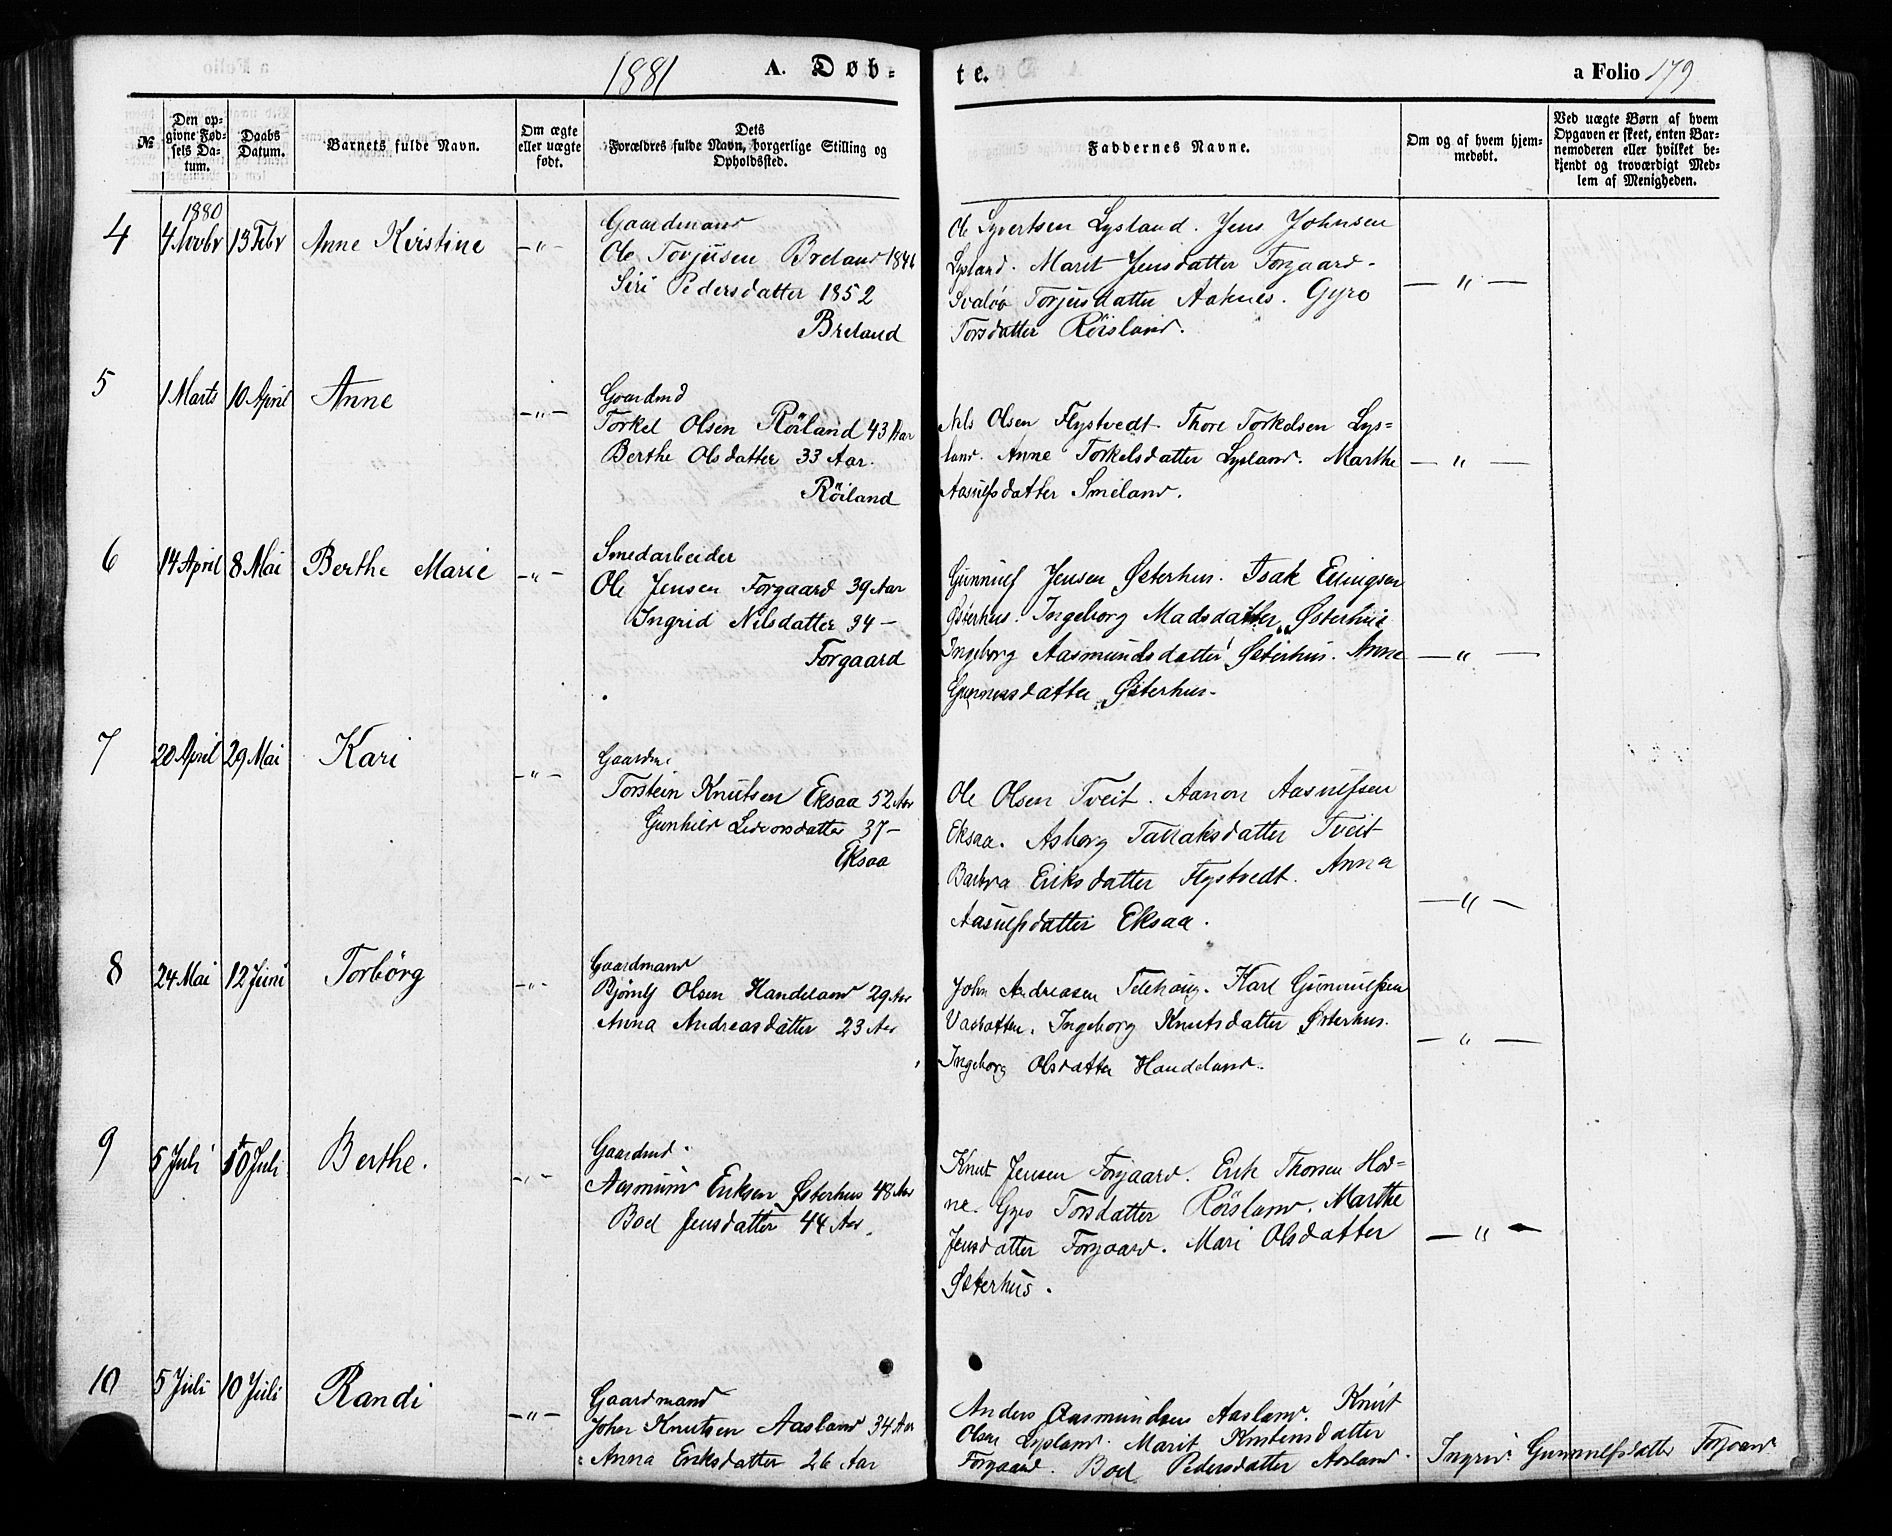 1881 A. Døb-
te. a Folio 179
№
Den op-
givne Fød-
sels Da-
tum.
Daabs
Datum.
Barnets fulde Navn.
Om ægte
eller uægte
født.
Dets
Forældres fulde Navn, borgerlige Stilling og
Opholdssted.
Faddernes Navne.
Om og af hvem hjem-
medøbt.
Ved uægte Børn af hvem
Opgaven er skeet, enten Bar-
nemoderen eller hvilket be-
kjendt og troværdigt Med-
lem af Menigheden.
1880
4 4 Novbr 13 Febr Anne Kirstine —"—
Gaardmand
Ole Torjusen Breland 1846
Siri Pedersdatter 1852
Breland
Ole Syvertsen Lysland. Jens Johnsen
Lysland. Marit Jensdatter Forgaard.
Svaløv Torjusdatter Aaknes. Gyro
Torsdatter Røisland.
— " —
5 1 Marts 10 April Anne —"—
Gaardmd
Torkel Olsen Røiland 43 Aar
Berthe Olsdatter 33 Aar.
Røiland
Nils Olsen Flystvedt. Thore Torkelsen Lys=
land. Anne Torkelsdatter Lysland. Marthe
Aasulfsdatter Smeland.
— " —
6 14 April 8 Mai Berthe Marie —"—
Smedarbeider
Ole Jensen Forgaard 39 Aar
Ingrid Nilsdatter 34 —
Forgaard
Gunnulf Jensen Østerhus. Isak Ellingsen
Østerhus. Ingeborg Madsdatter Østerhus
Ingeborg Aasmundsdatter Østerhus. Anne
Østerhus.
— " —
7 20 April 29 Mai Kari —"—
Torstein Knutsen Eksaa 52 Aar
Gunhild Ledvorsdatter 37 —
Eksaa
Ole Olsen Tveit. Aanon Aasulfsen
Eksaa. Asborg Tallaksdatter Tveit
Barbra Eriksdatter Flystvedt. Anna
Aasulfsdatter Eksaa.
— " —
8 24 Mai 12 Juni Torbørg —"—
Gaardmand
Bjørulf Olsen Handeland 29 Aar
Anna Andreasdatter 23 Aar
John Andreasen Telehaug. Karl Gunnulfsen
Ingeborg Knutsdatter Østerhus.
Ingeborg Olsdatter Handeland.
— " —
9 5 Juli 10 Juli Berthe. —"—
Gaardmd.
Aasmund Eriksen Østerhus 48 Aar
Bod Jensdatter 44 Aar.
Knut Jensen Forgaard. Erik Thorsen Hod=
ne. Gyro Torsdatter Røisland. Marthe
Jensdatter Forgaard. Mari Olsdatter
Østerhus.
— " —
10 5 Juli 10 Juli Randi —"—
Gaardmand
John Knutsen Aasland 34 Aar
Anna Eriksdatter 26 Aar
Anders Aasmundsen Aasland. Knut
Olsen Lysland. Marit Knutsdatter
Forgaard. Bod Pedersdatter Aasland.
Ingrid Gunnulfsdatter Forgaard